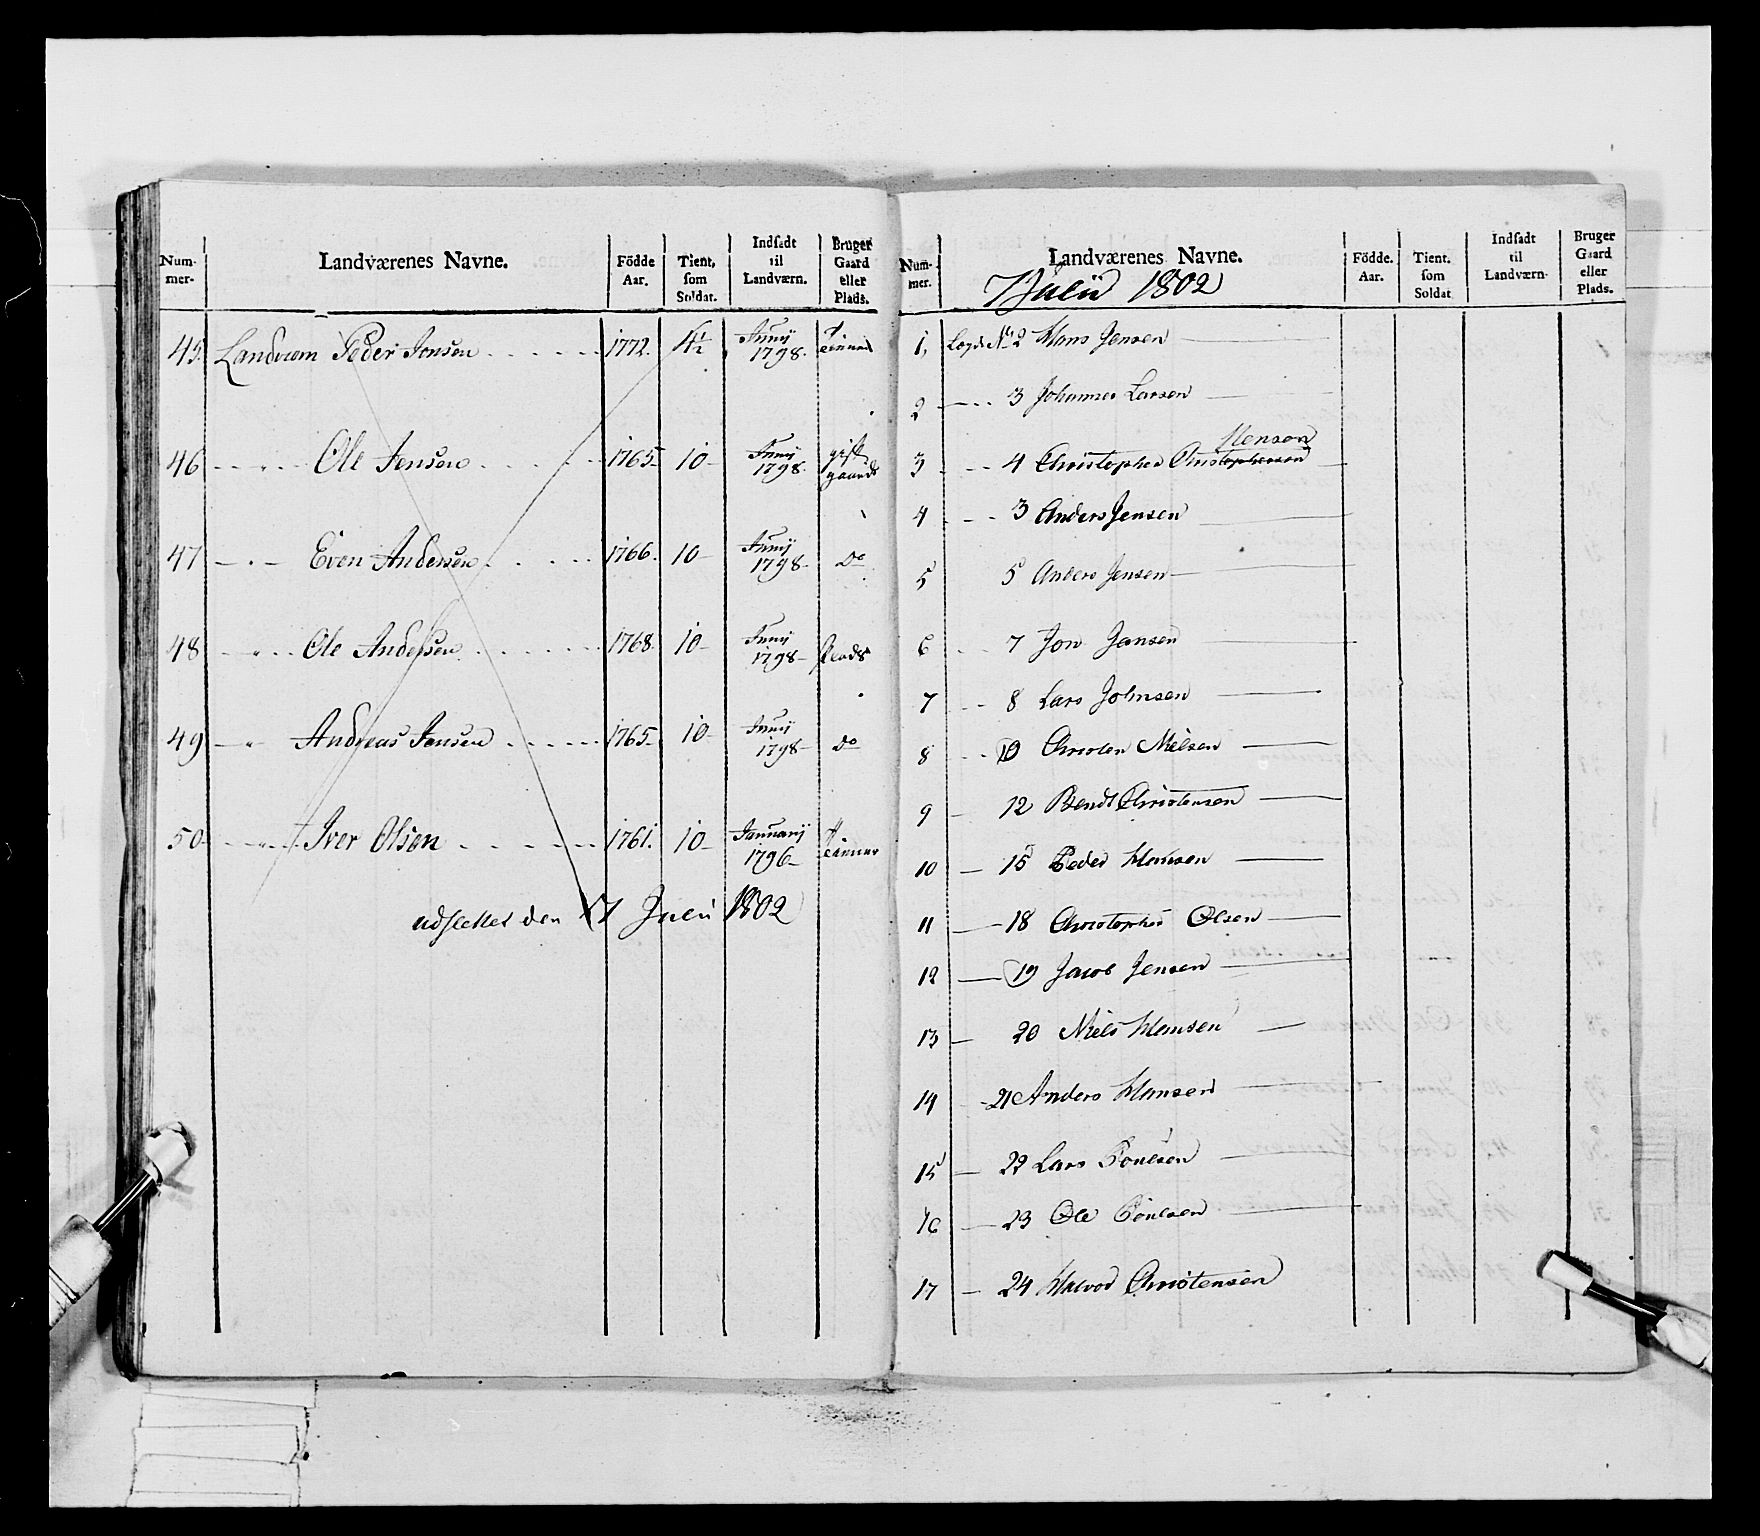 Num-mer. Landværenes Navne. Födde Aar. Tient, som Soldat. Indsadt til Landværn. Bruger Gaard eller Plads.
45. Landværn Peder Jensen 1772. 4½ Junij 1798.
46 Ole Jensen 1765 10 Junij 1798. gift gaard
47 Even Andersen 1766. 10 Junij 1798 do
48 Ole Andersen 1768 10 Junij 1798 Plads
49 Andreas Jensen 1765 10 Junij 1798 do
50 Iver Olsen 1761. 10 Januarij 1796
udslettet den 17 Julii 1802
Num-mer. Landværenes Navne. Födde. Aar. Tient. som Soldat Indsadt til Landværn. Bruger Gaard eller Plads.
Julii 1802
1, Legd No 2 Hans Jensen
2 3 Johannes Larsen
3 4 Christopher Christophersen Hensen
4 3 Anders Jensen
5 5 Anders Jensen
6 7 Jon Jansen
7 8 Lars Johnsen
8 10 Christen Nielsen
9 12 Bendt Christensen
10 15 Peder Hansen
11 18 Christopher Olsen
12 19 Jacob Jensen
13 20 Niels Hansen
14 21 Anders Hansen
15 22 Lars Poulsen
16 23 Ole Poulsen
17 24 Halvor Christensen